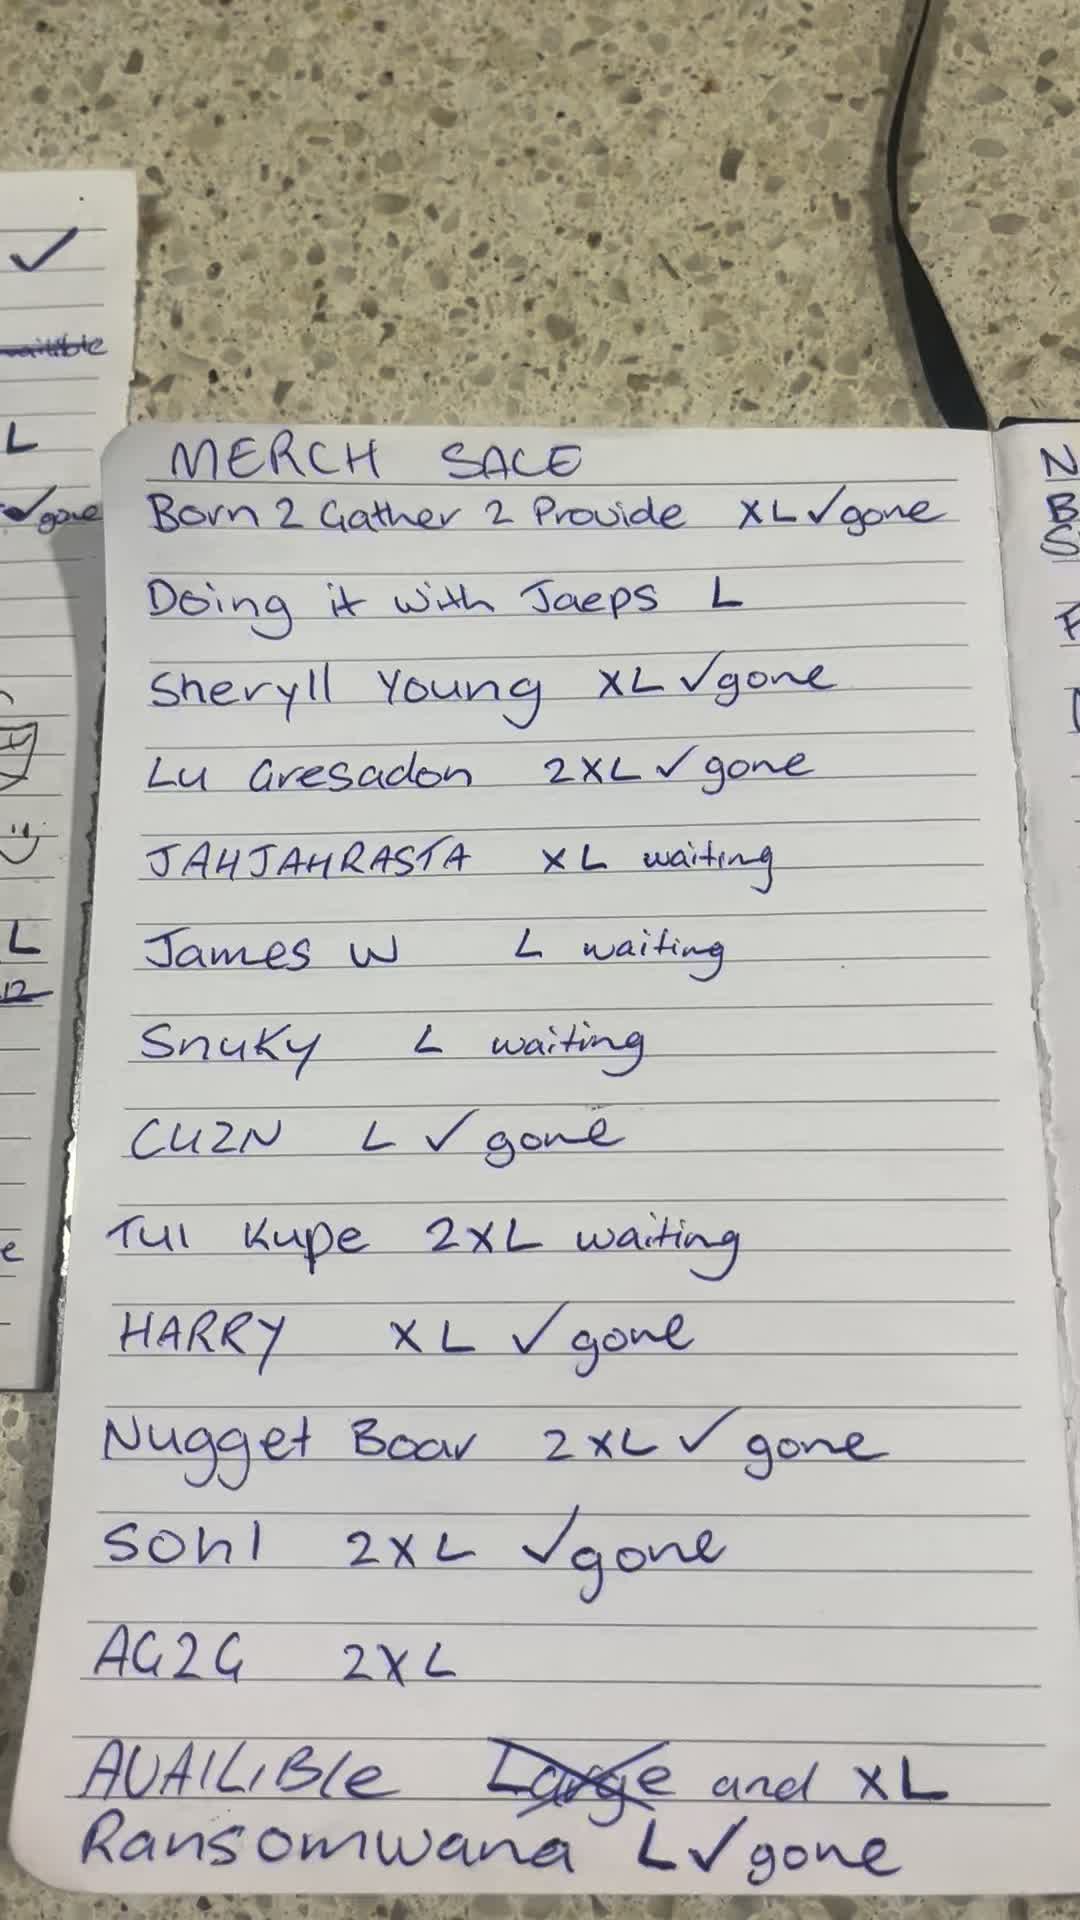 MERCH SALE
Born 2 Gather 2 Provide XL ✓ gone
Doing it with Jaeps L
Sheryll Young XL ✓ gone
Lu Gresadon 2XL ✓ gone
JAHJAHRASTA XL waiting
James W L waiting
Snuky L waiting
CUZN L ✓ gone
TUI Kupe 2XL waiting
HARRY XL ✓ gone
Nugget Boar 2XL ✓ gone
SOHI 2XL ✓ gone
AG2G 2XL
AVAILIBle Large and XL
Ransomwana L ✓ gone
✓
L
✓ gone
L
12
e
N
B
S
F